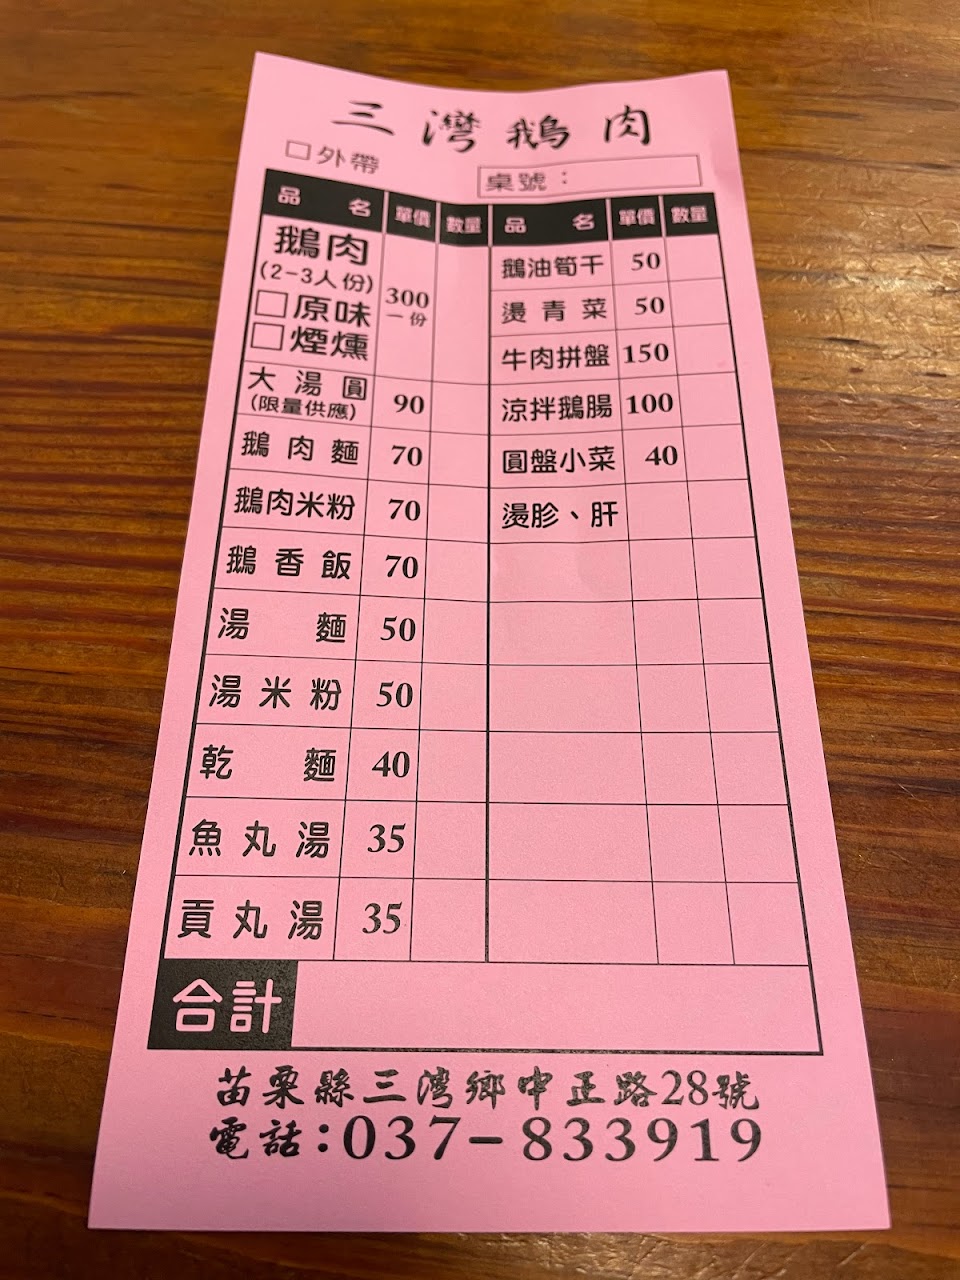 三灣鵝肉
□外帶
桌號：
品名 單價 數量 品名 單價 數量
鵝肉
(2-3人份)
□原味
□煙燻
300
一份
大湯圓
(限量供應)
90
鵝肉麵 70
鵝肉米粉 70
鵝香飯 70
湯麵 50
湯米粉 50
乾麵 40
魚丸湯 35
貢丸湯 35
鵝油筍干 50
燙青菜 50
牛肉拼盤 150
涼拌鵝腸 100
圓盤小菜 40
燙胗、肝
合計
苗栗縣三灣鄉中正路28號
電話:037-833919